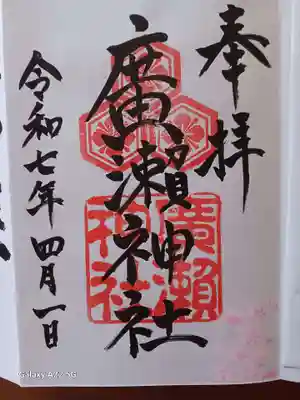 奉拝
廣瀬神社
廣瀬
神社
令和七年 四月一日
Galaxy A22 5G